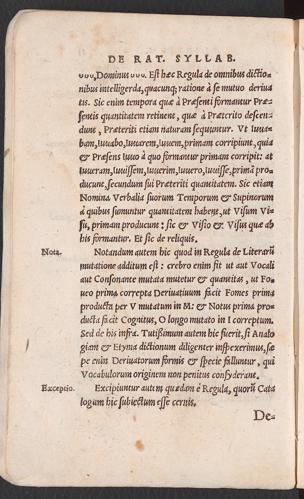 DE RAT. SYLLAB.
υυυ, Dominus υυυ. Est hæc Regula de omnibus dictio-
nibus intelligenda, quacunq; ratione à se mutuo deriua
tis. Sic enim tempora quæ à Præsenti formantur Præ-
sentis quantitatem retinent, quæ à Præterito descen-
dunt, Præteriti etiam naturam sequuntur. Vt Iuua-
bam, iuuabo, iuuarem, iuuem, primam corripiunt, quia
& Præsens Iuuo à quo formantur primam corripit: at
Iuueram, iuuissem, iuuerim, iuuero, iuuisse, primã pro-
ducunt, secundum sui Præteriti quantitatem. Sic etiam
Nomina Verbalia suorum Temporum & Supinorum
à quibus sumuntur quantitatem habent, ut Visum Vi-
su, primam producunt: sic & Visio & Visus quæ ab
his formantur. Et sic de reliquis.
Nota.
Notandum autem hic quod in Regula de Literarũ
mutatione additum est: crebro enim fit ut aut Vocali
aut Consonante mutata mutetur & quantitas, ut Fo-
ueo prima correpta Deriuatiuum facit Fomes prima
producta per V mutatum in M: & Notus prima pro-
ducta facit Cognitus, O longo mutato in I correptum.
Sed de his infra. Tutißimum autem hic fuerit, si Analo
giam & Etyma dictionum diligenter inspexerimus, sæ-
pe enim Deriuatorum formis & specie falluntur, qui
Vocabulorum originem non penitus consyderant.
Exceptio.
Excipiuntur autem quædam è Regula, quorũ Cata
logum hic subiectum esse cernis.
De-